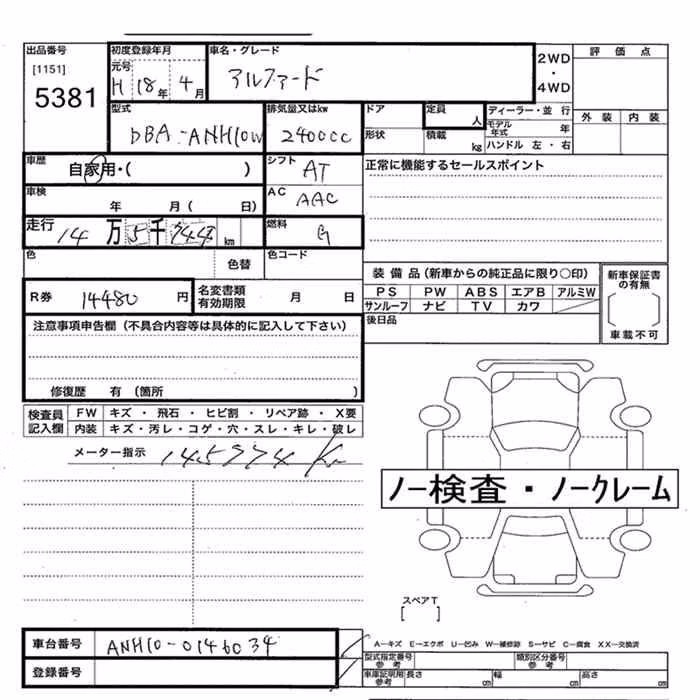 出品番号 初度登録年月 車名・グレード 2WD 評価点
[1151] 元号 ・
5381 H 18年 4月 アルファード 4WD
型式 排気量又はkw ドア 定員 人 ディーラー・並行 外装 内装
DBA-ANH10W 2400cc 形状 積載 kg モデル年式 年
ハンドル 左・右
車歴 自家用・( ) シフト AT 正常に機能するセールスポイント
車検 年 月( 日) AC AAC
走行 14万5千 km 燃料 G
色 色替 色コード
装備品(新車からの純正品に限り○印) 新車保証書の有無
R券 14480円 名変書類有効期限 月 日 PS PW ABS エアB アルミW
サンルーフ ナビ TV カワ
注意事項申告欄(不具合内容等は具体的に記入して下さい) 後日品 車載不可
修復歴 有(箇所 )
検査員記入欄 FW キズ・飛石・ヒビ割・リペア跡・X要
内装 キズ・汚レ・コゲ・穴・スレ・キレ・破レ
メーター指示 Km
ノー検査・ノークレーム
スペアT
[ ]
車台番号 ANH10-0146034
A−キズ E−エクボ U−凹み W−補修跡 S−サビ C−腐食 XX−交換済
登録番号
型式指定番号参考 類別区分番号参考
車庫証明用参考 長さ cm 幅 cm 高さ cm